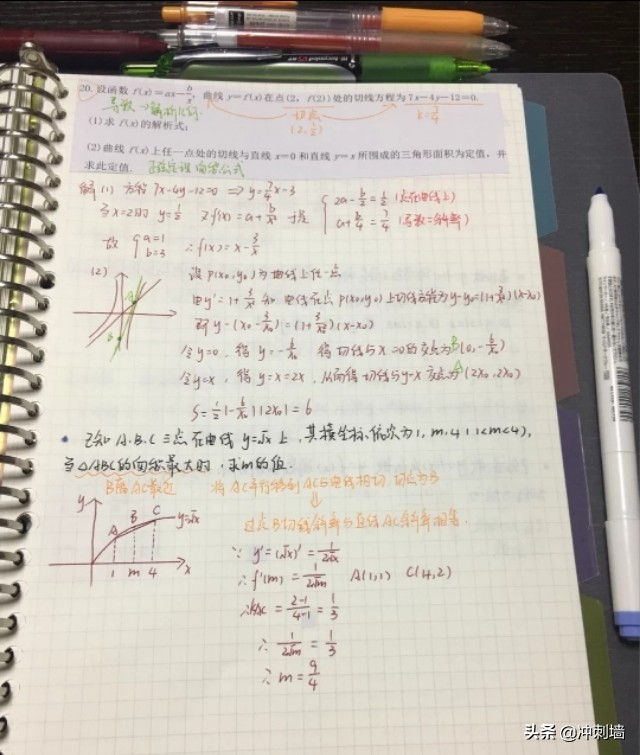 20. 设函数 f(x)=ax-b/x, 曲线 y=f(x)在点(2, f(2))处的切线方程为 7x-4y-12=0.
导数→解析几何 切点 k=7/4
(2, 1/2)
(1)求 f(x)的解析式;
(2)曲线 f(x)上任一点处的切线与直线 x=0 和直线 y=x 所围成的三角形面积为定值,并
求此定值. 面积公式
解 (1) 方程 7x-4y-12=0 ⇒ y=7/4x-3
当x=2时 y=1/2 又f'(x)=a+b/x² 于是 { 2a-b/2=1/2 (点在曲线上)
a+b/4=7/4 (导数=斜率)
故 { a=1
b=3 ∴f(x)=x-3/x
(2) 设P(x₀,y₀)为曲线上任一点
由y'=1+3/x² 知 曲线在点P(x₀,y₀)上切线方程为y-y₀=(1+3/x₀²)(x-x₀)
即 y-(x₀-3/x₀)=(1+3/x₀²)(x-x₀)
令y=0, 得 y=-6/x₀ 得切线与x=0的交点为B(0,-6/x₀)
令y=x, 得y=x=2x₀ 从而得切线与y=x交点为A(2x₀,2x₀)
S=1/2|-6/x₀||2x₀|=6
• 已知A.B.C三点在曲线 y=√x 上, 其横坐标依次为1, m, 4 (1<m<4),
当△ABC的面积最大时, 求m的值.
B离AC最远 将AC平行移到AC与曲线相切, 切点为B
⇓
过点B切线斜率与直线AC斜率相等.
y A B C y=√x
1 m 4 x
∵ y'=(√x)'=1/2√x
∴f'(m)=1/2√m A(1,1) C(4,2)
∴kAC=2-1/4-1=1/3
∴ 1/2√m=1/3
∴ m=9/4
头条 @冲刺墙